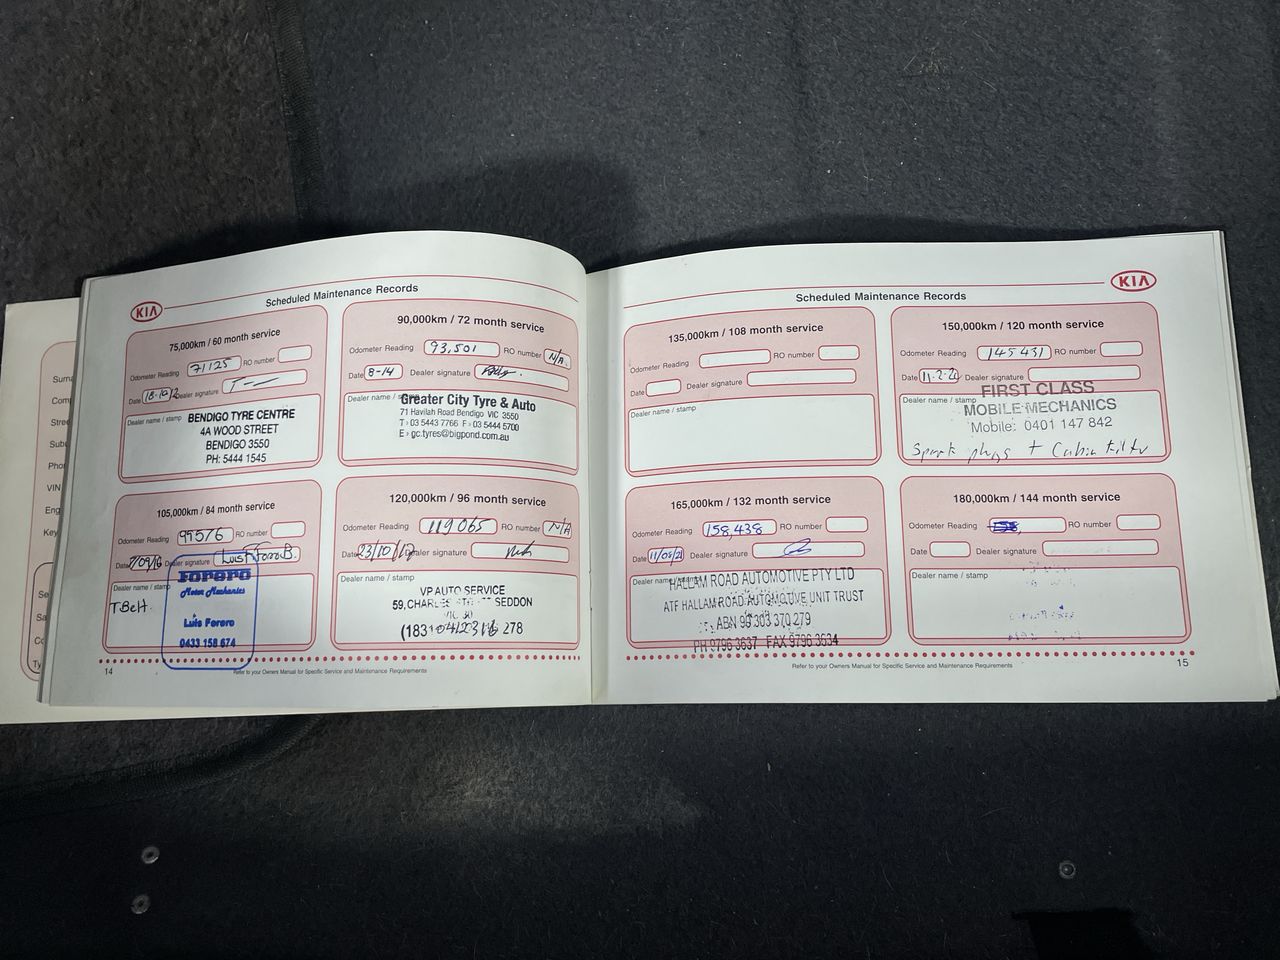 KIA
Scheduled Maintenance Records
75,000km / 60 month service
Odometer Reading 71125 RO number
Date 18-10-12 Dealer signature
Dealer name / stamp
BENDIGO TYRE CENTRE
4A WOOD STREET
BENDIGO 3550
PH: 5444 1545
90,000km / 72 month service
Odometer Reading 93,501 RO number N/A
Date 8-14 Dealer signature
Dealer name / stamp
Greater City Tyre & Auto
71 Havilah Road Bendigo VIC 3550
T › 03 5443 7766 F › 03 5444 5700
E › gc.tyres@bigpond.com.au
105,000km / 84 month service
Odometer Reading 99576 RO number
Date 7/09/16 Dealer signature Luis F Forero B.
Dealer name / stamp
T Belt
Forero
Motor Mechanics
Luis Forero
0433 158 674
120,000km / 96 month service
Odometer Reading 119065 RO number N/A
Date 23/10/17 Dealer signature
Dealer name / stamp
VP AUTO SERVICE
59, CHARLES STREET SEDDON
VIC 30
278
14
Refer to your Owners Manual for Specific Service and Maintenance Requirements
KIA
Scheduled Maintenance Records
135,000km / 108 month service
Odometer Reading RO number
Date Dealer signature
Dealer name / stamp
150,000km / 120 month service
Odometer Reading 145431 RO number
Date 11-2-20 Dealer signature
Dealer name / stamp
FIRST CLASS
MOBILE MECHANICS
Mobile: 0401 147 842
Spark plugs + Cabin filter
165,000km / 132 month service
Odometer Reading 158,438 RO number
Date 11/05/21 Dealer signature
Dealer name / stamp
HALLAM ROAD AUTOMOTIVE PTY LTD
ATF HALLAM ROAD AUTOMOTIVE UNIT TRUST
ABN 96 303 370 279
PH 9796 3637 FAX 9796 3634
180,000km / 144 month service
Odometer Reading RO number
Date Dealer signature
Dealer name / stamp
Refer to your Owners Manual for Specific Service and Maintenance Requirements
15